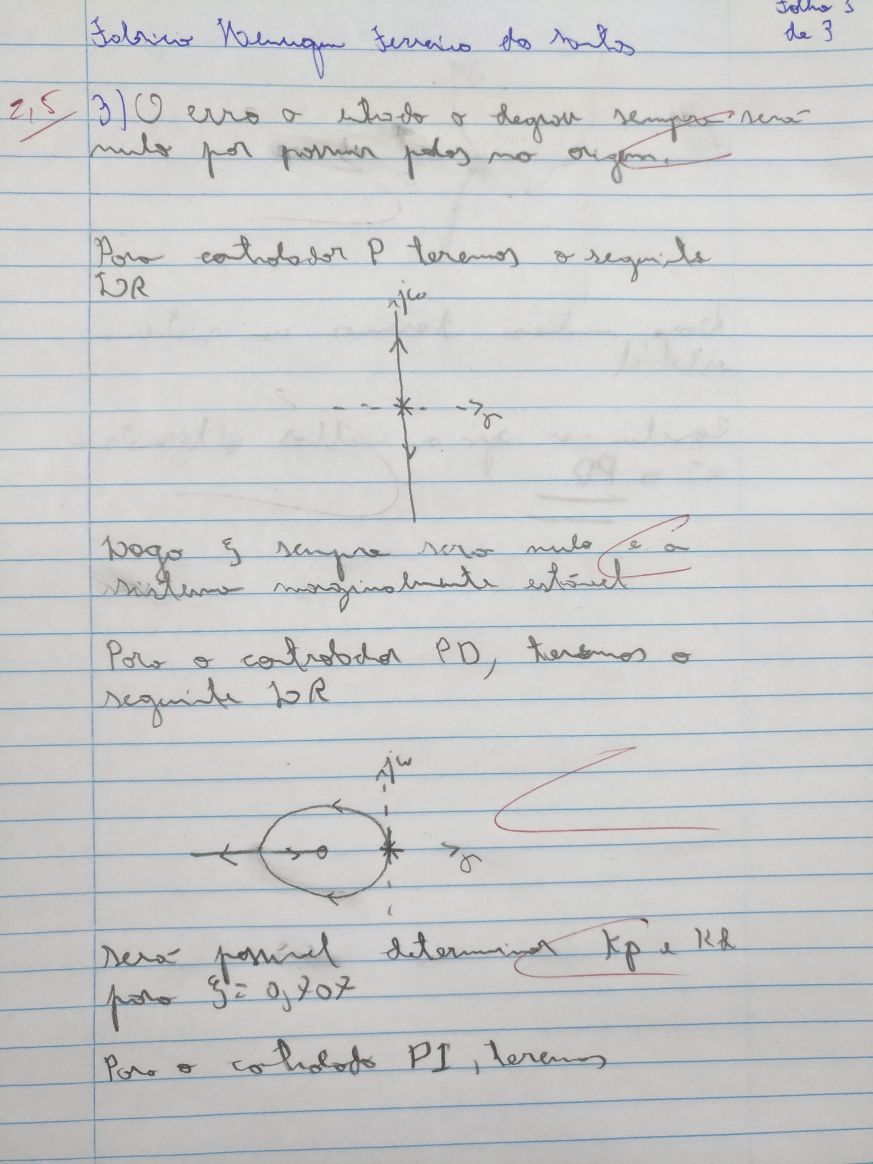 Fabricio Henrique Ferreira dos Santos
Folha 3
de 3
2,5
3) O erro a entrada a degrau sempre será
nulo por possuir polos na origem.
Para controlador P teremos o seguinte
LR
jω
σ
Logo ξ sempre sera nulo e o
sistema marginalmente estável
Para o controlador PD, teremos o
seguinte LR
jω
σ
será possível determinar Kp e Kd
para ξ = 0,707
Para o controlado PI, teremos